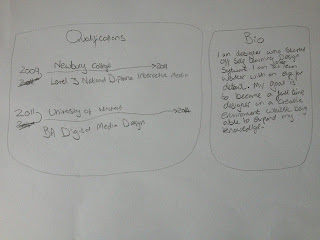 Qualifications
2009 Newbury College 2011
Level 3 National Diploma Interactive Media
2011 University of
BA Digital Media Design
Bio
I am designer who started
off self learning design
software. I am
worker with an eye for
detail. My goal is
to become a full time
designer in a creative
environment whilst being
able to expand my
knowledge.